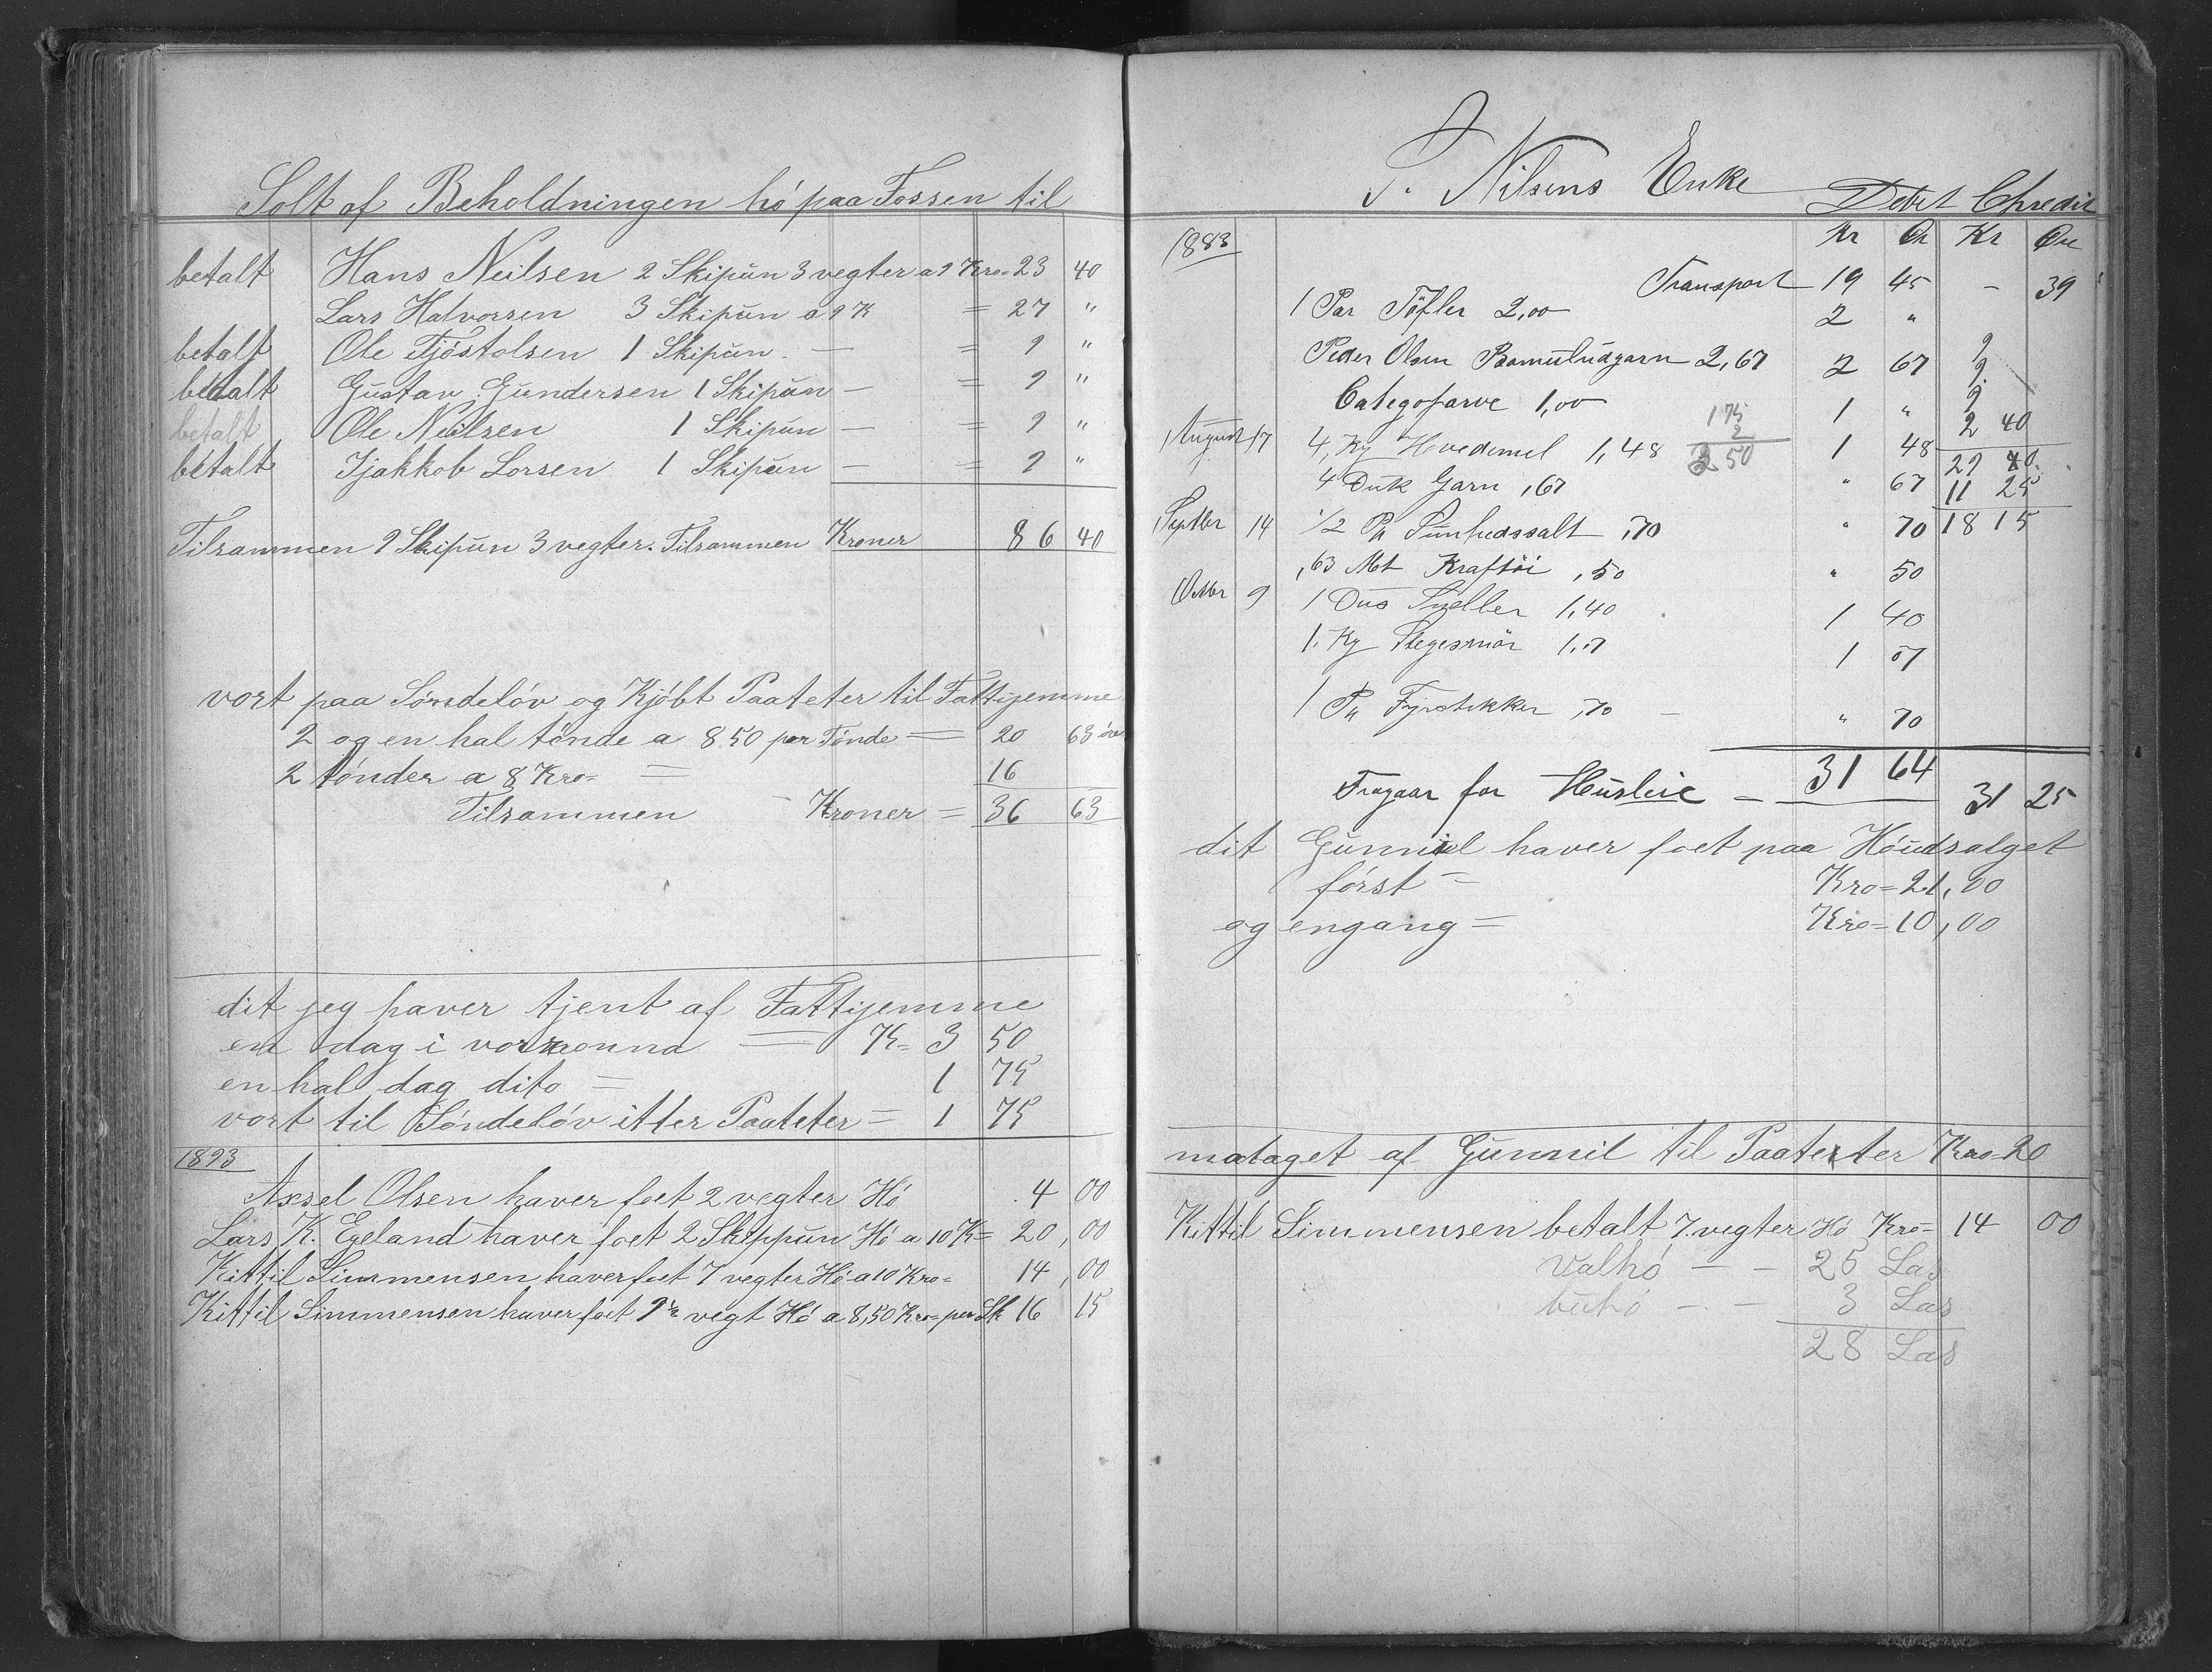 Solt af Beholdningen hó paa Fossen til
betalt Hans Neilsen 2 Skipún 3 vegter a 9 Kro= 23 40
Lars Halvorsen 3 Skipún a 9 K = 27 "
betalt Ole Tjóstolsen 1 Skipún. — = 9 "
betalt Gustav Gundersen 1 Skipún — = 9 "
betalt Ole Neilsen 1 Skipún — = 9 "
betalt Tjakkob Lorsen 1 Skipún — = 9 "
Tilsammen 9 Skipún 3 vegter. Tilsammen Kroner 86 40
vort paa Sóndelóv og Kjóbt Paateter til Fattijemme
2 og en hal tónde a 8 50 per Tónde = 20 63 óre
2 tónder a 8 Kro= = 16
Tilsammen - Kroner = 36 63
dit jeg haver tjent af Fattijemme
en dag i voraonna = K= 3 50
en hal dag dito = 1 75
vort til Sóndelóv itter Paateter = 1 75
1893
Axsel Olsen haver foet 2 vegter Hó 4 00
Lars K. Egeland haver foet 2 Skippun Hó a 10 K= 20,00
Kittil Simmensen haver foet 7 vegter Hó a 10 Kro= 14,00
Kittil Simmensen haver foet 9½ vegt Hó a 8,50 Kro= per Sk 16 15
P. Nilsens Enke Debet Chredit
1883 Kr Ør Kr Øre
Transport 19 45 – 39
1 Par Töfler 2,00 2 "
Peder Olsen Bomuldsgarn 2,67 2 67 9
9
Categofarve 1,00 1 " 9
1 75
2
3 50
2 40
August 17 4, Kg Hvedemel 1,48 1 48 29 40
4 Duk Garn ,67 " 67 11 25
Septbr 14 1/2 Pk Sunhedssalt ,70 " 70 18 15
,63 Mt Kraftöi ,50 " 50
Octbr 9 1 Dus Sneller 1,40 1 40
1. Kg Stegesmör 1,07 1 07
1 Pk Fyrstikker ,70 – " 70
31 64
Fragaar for Husleie — 31 25
dit Gunnil haver foet paa Hóudsalget
fórst = Kro= 21,00
og engang = Kro= 10,00
motaget af Gunnil til Paateter Kro= 20
Kittil Simmensen betalt 7. vegter Hó Kro= 14 00
Valhó — — 25 Las
buhó — — 3 Las
28 Las